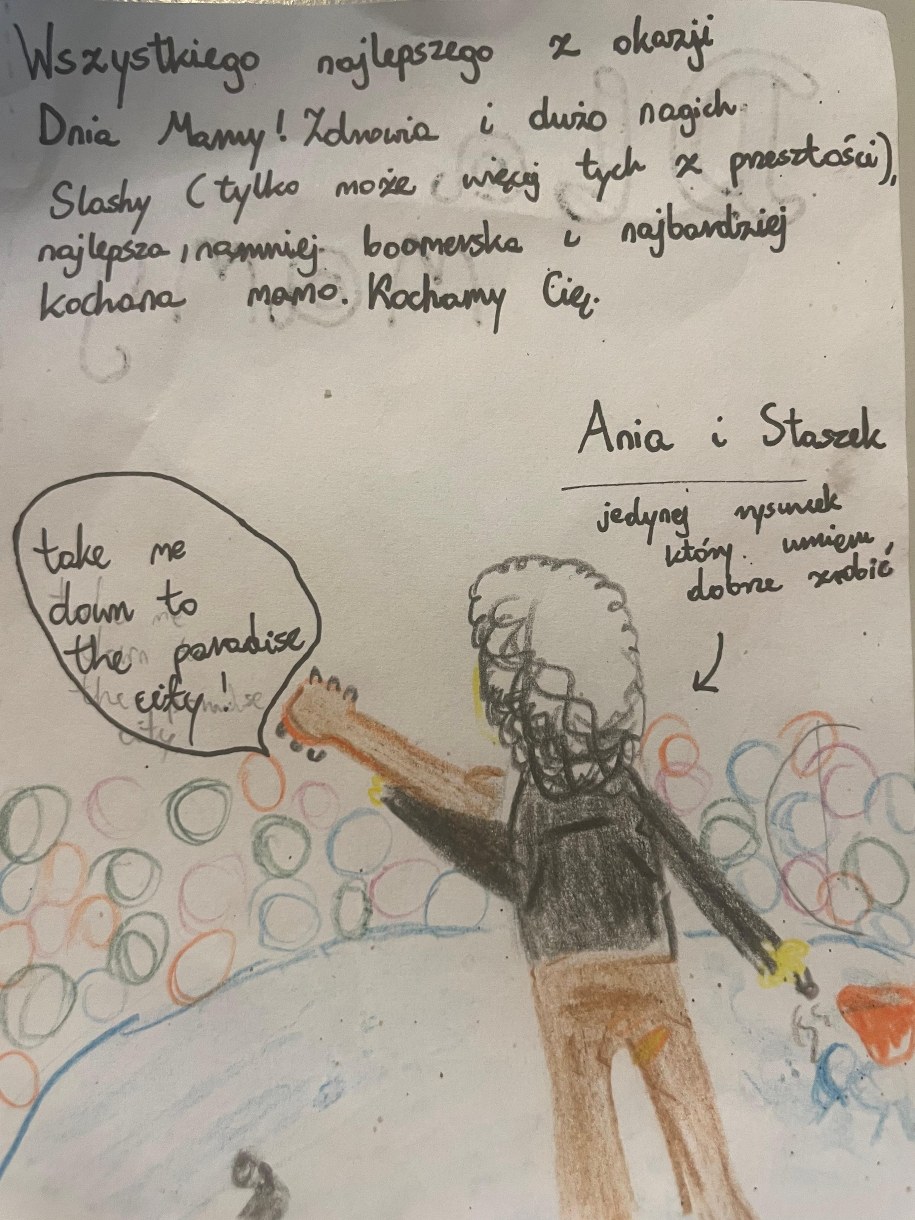 Wszystkiego najlepszego z okazji
Dnia Mamy! Zdrowia i dużo nagich
Slashy (tylko może więcej tych z przeszłości),
najlepsza, namniej boomerska i najbardziej
kochana mamo. Kochamy Cię.
Ania i Staszek
jedynej rysunek
który umiem
dobrze zrobić
take me
down to
the paradise
city!